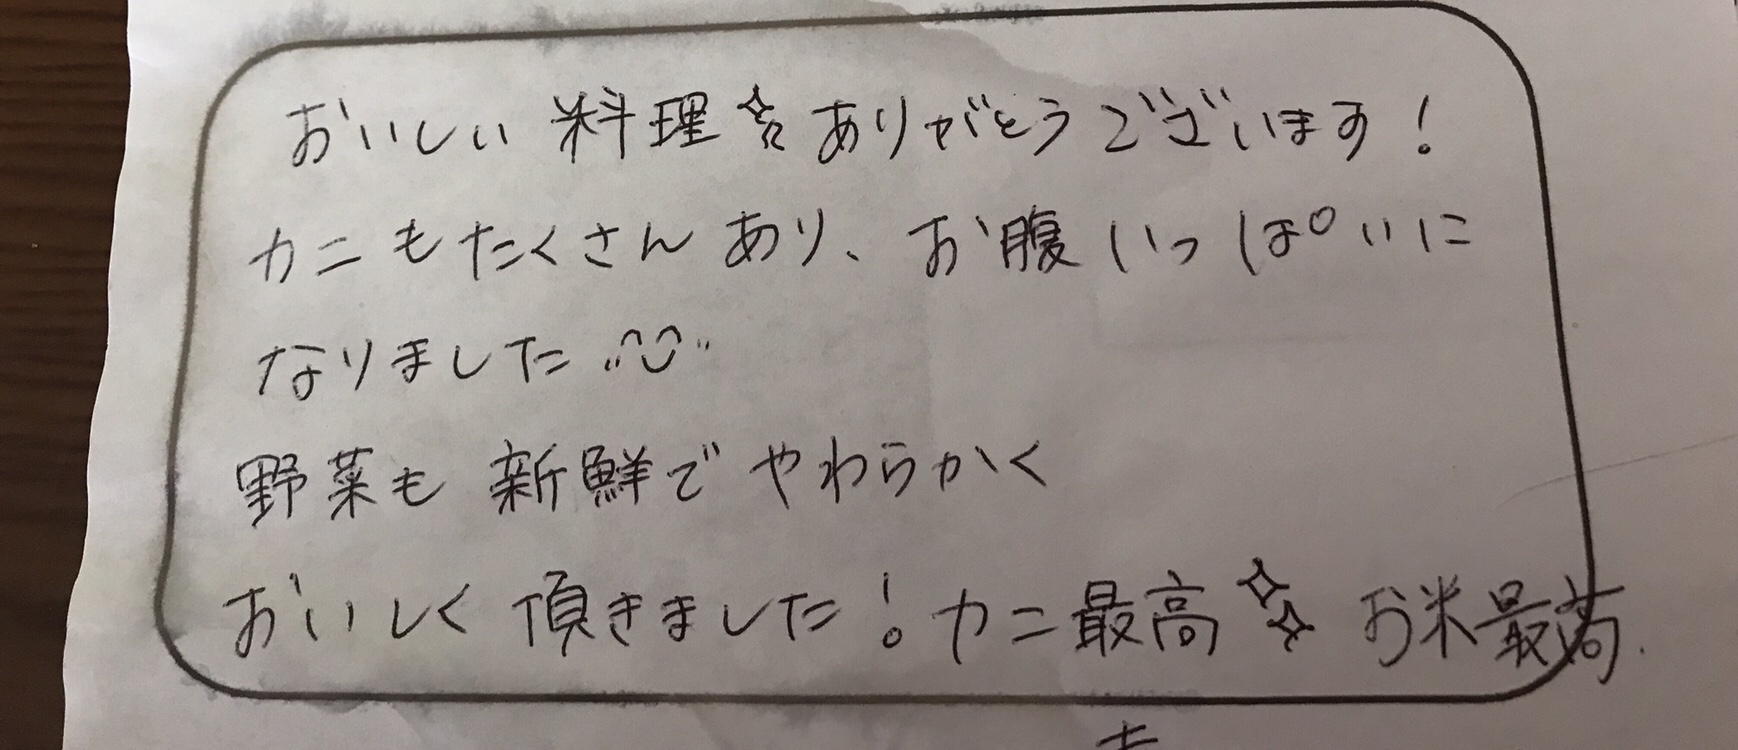 おいしい料理✨ありがとうございます！
カニもたくさんあり、お腹いっぱいに
なりました
野菜も新鮮でやわらかく
おいしく頂きました！カニ最高✨ お米最高.